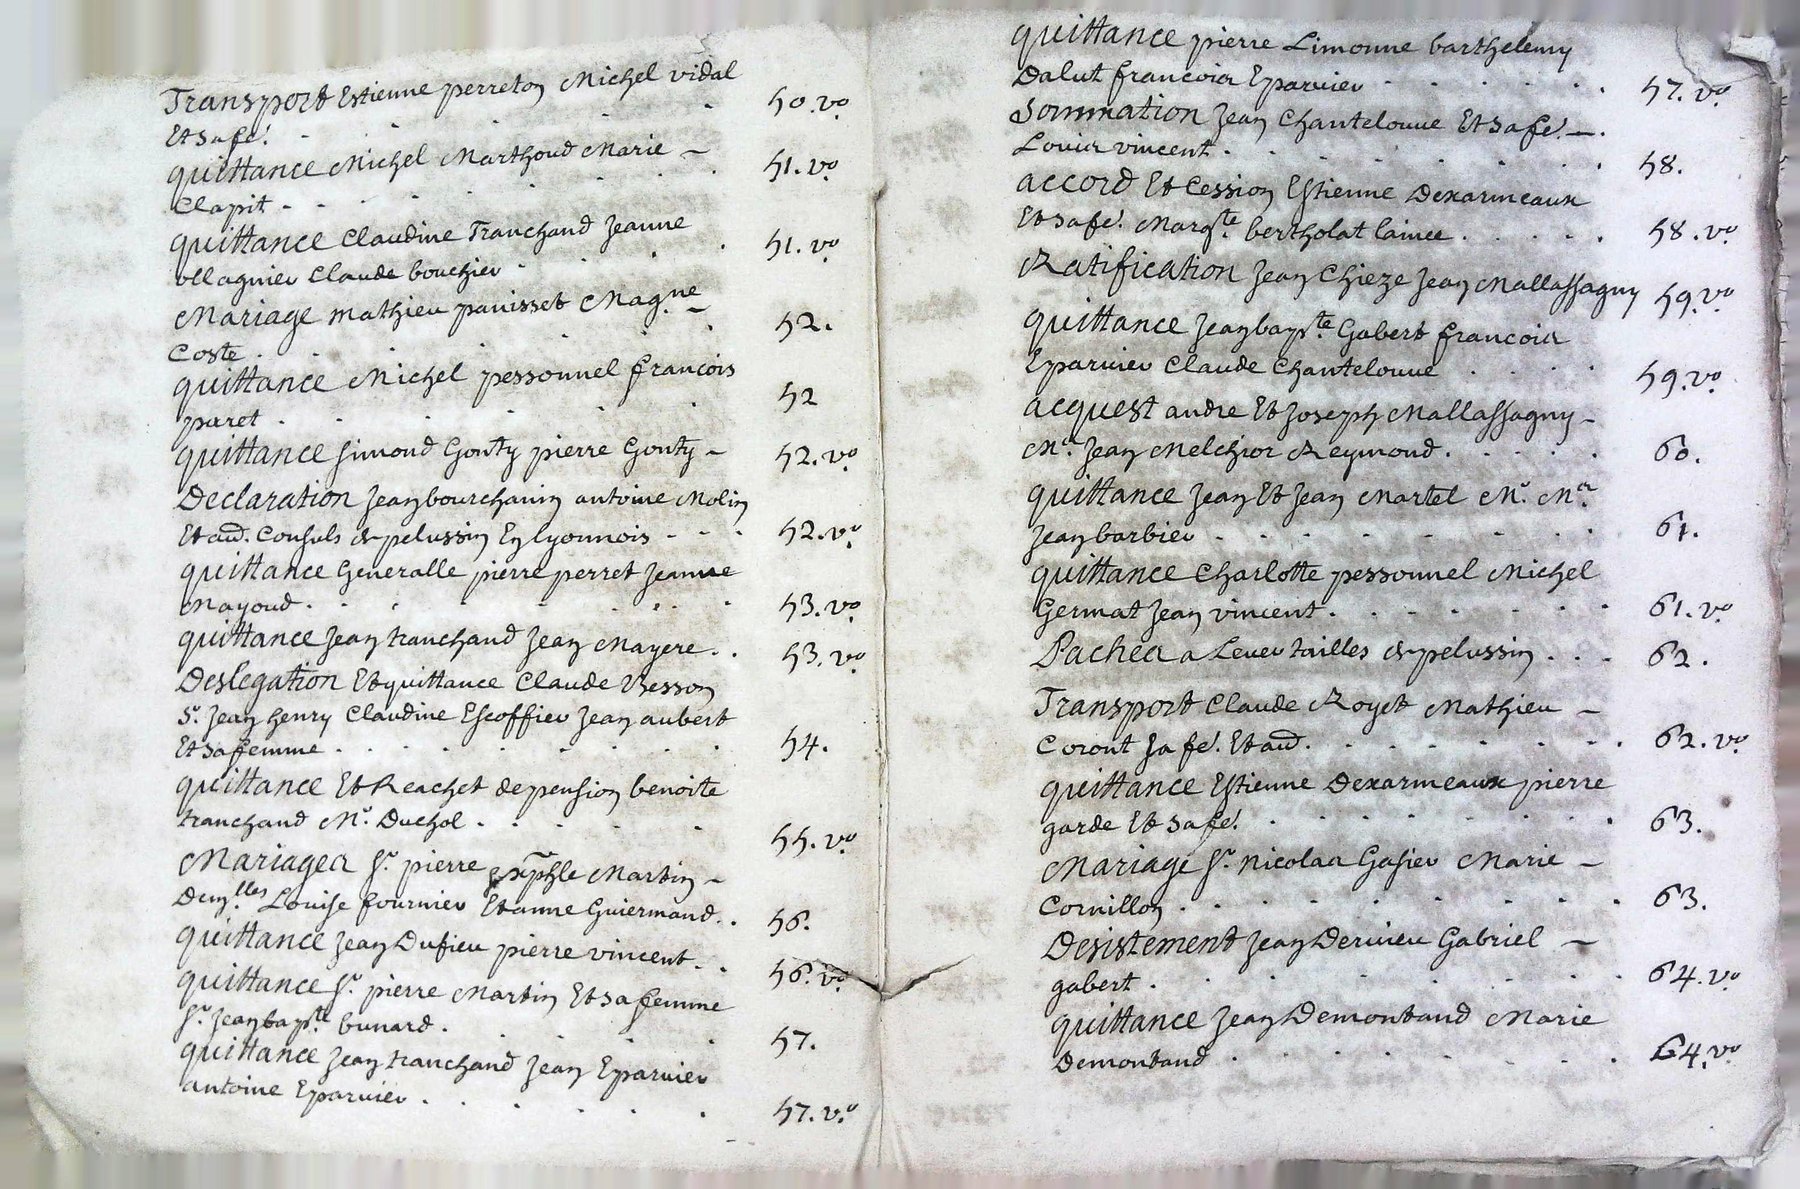 Transport Estienne perreton Michel vidal
Et sa fe. 50. vo
quittance Michel Marthoud Marie –
Clapit - 51. vo
quittance Claudine Tranchand Jeanne
ollagnier Claude bouchier 51. vo
Mariage mathieu panisset Magne –
Coste 52.
quittance Michel pessonnel francois
paret 52
quittance simond Gonty pierre Gonty – 52. vo
Declaration Jean bourchanin antoine Molin
Et au. Consuls de pelussin En lyonnois - - - 52. vo
quittance Generalle pierre perret Jeanne
Mayoud 53. vo
quittance Jean tranchand Jean Mayere 53. vo
Deslegation Et quittance Claude Besson
Sr. Jean henry Claudine Escoffier Jean aubert
Et sa femme 54.
quittance Et Reachet de pension benoite
tranchand Mr. Duchol 55. vo
Mariages sr. pierre Martin –
Denlles Louise fournier Et anne Guiermand 56.
quittance Jean Dufieu pierre vincent 56. vo
quittance sr. pierre Martin Et sa femme
sr. Jean bapte bunard 57.
quittance Jean tranchand Jean Eparvier
antoine Eparvier 57. vo
quittance pierre Limonne barthelemy
Dalut francois Eparvier 57. vo
Sommation Jean Chantelouve Et sa fe. –
Louis vincent 58.
accord Et Cession Estienne Dexarmeaux
Et sa fe. Margte bertholat lainee 58. vo
Ratification Jean Chieze Jean Mallassagny 59. vo
quittance Jean bapte Gabert francois
Eparvier Claude Chantelouve 59. vo
acquest andre Et Joseph Mallassagny –
Me. Jean Melchior Reymond 60.
quittance Jean Et Jean Martel Mr. Mr
Jean barbier 61.
quittance Charlotte pessonnel Michel
Germat Jean vincent 61. vo
Paches a Lever tailles de pelussin 62.
Transport Claude Royet Mathieu –
Coront sa fe. Et au. 62. vo
quittance Estienne Dexarmeaux pierre
garde Et sa fe. 63.
Mariage sr. nicolas Gasier Marie –
Cornillon 63.
Desistement Jean Dervieu Gabriel –
gabert 64. vo
quittance Jean Demontaud Marie
Demontaud 64. vo